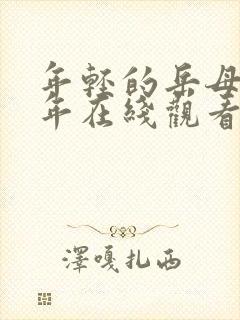 年轻的岳母
年在綫觀看
澤嘎扎西